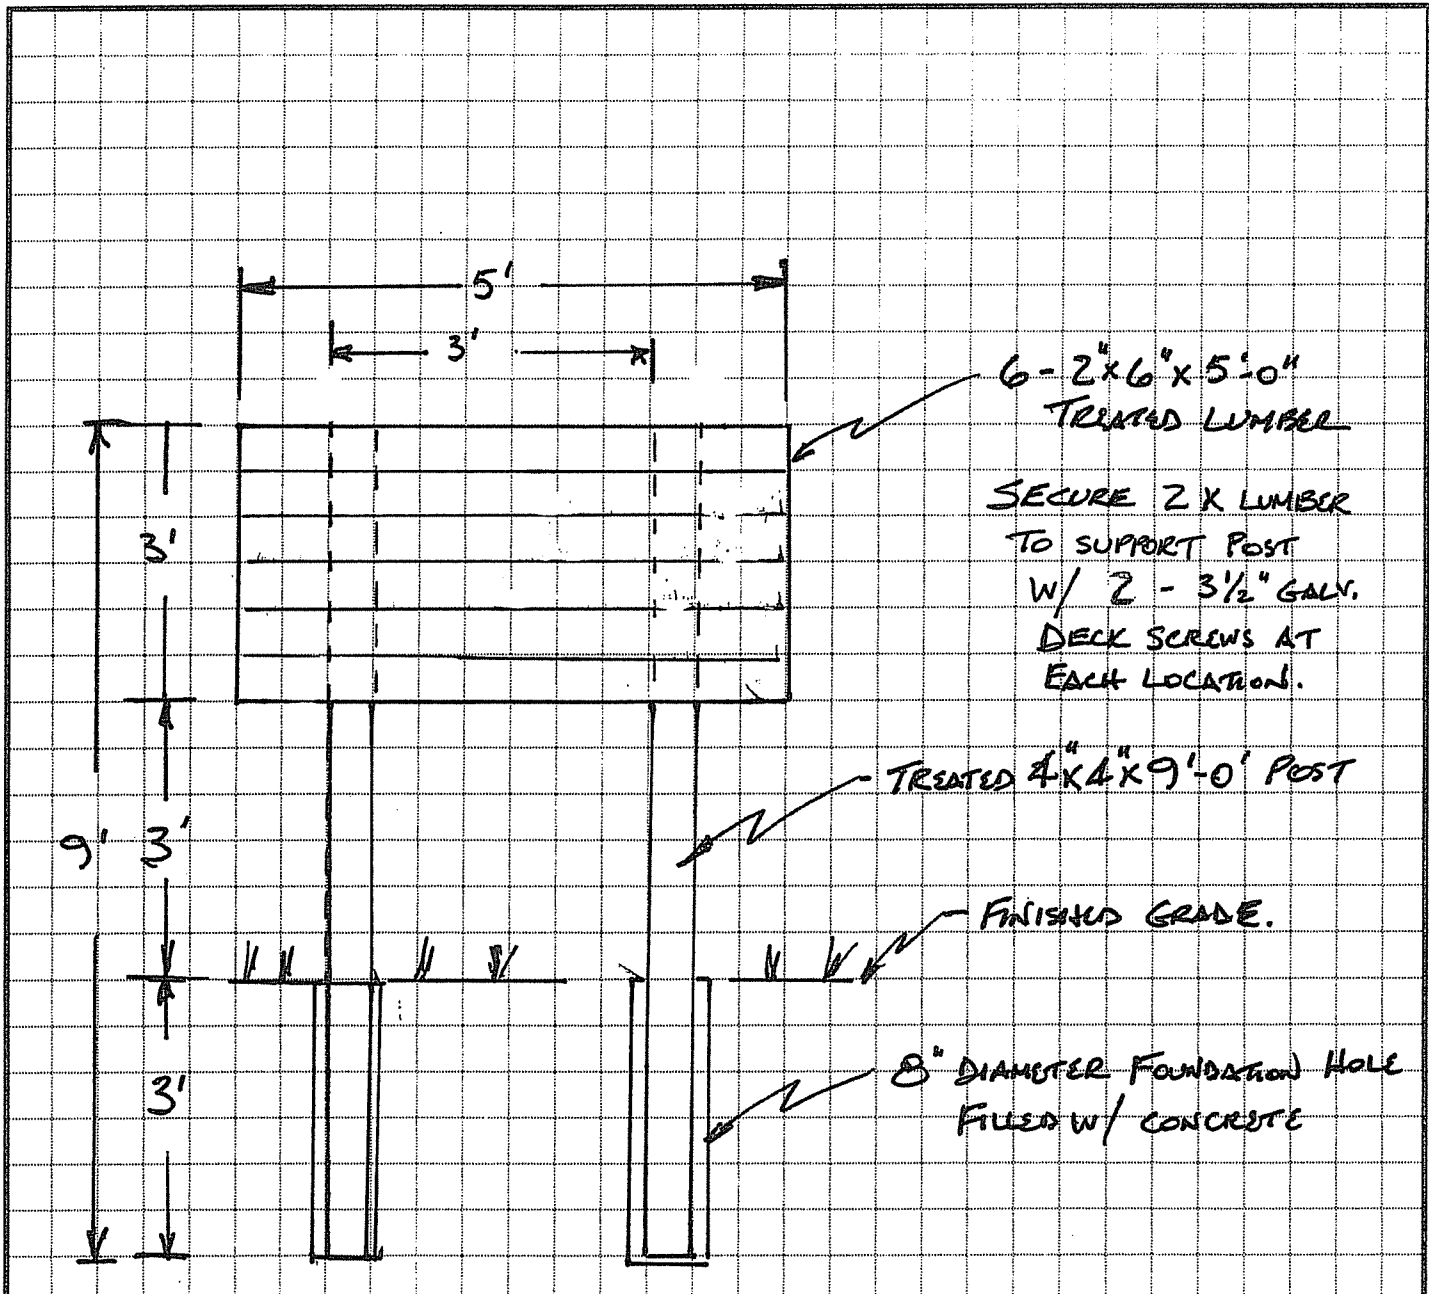 5'
3'
6 - 2" x 6" x 5'-0"
TREATED LUMBER
SECURE 2 X LUMBER
TO SUPPORT POST
W/ 2 - 3 1/2" GALV.
DECK SCREWS AT
EACH LOCATION.
3'
TREATED 4" x 4" x 9'-0' POST
9' 3'
FINISHED GRADE.
8" DIAMETER FOUNDATION HOLE
FILLED W/ CONCRETE
3'